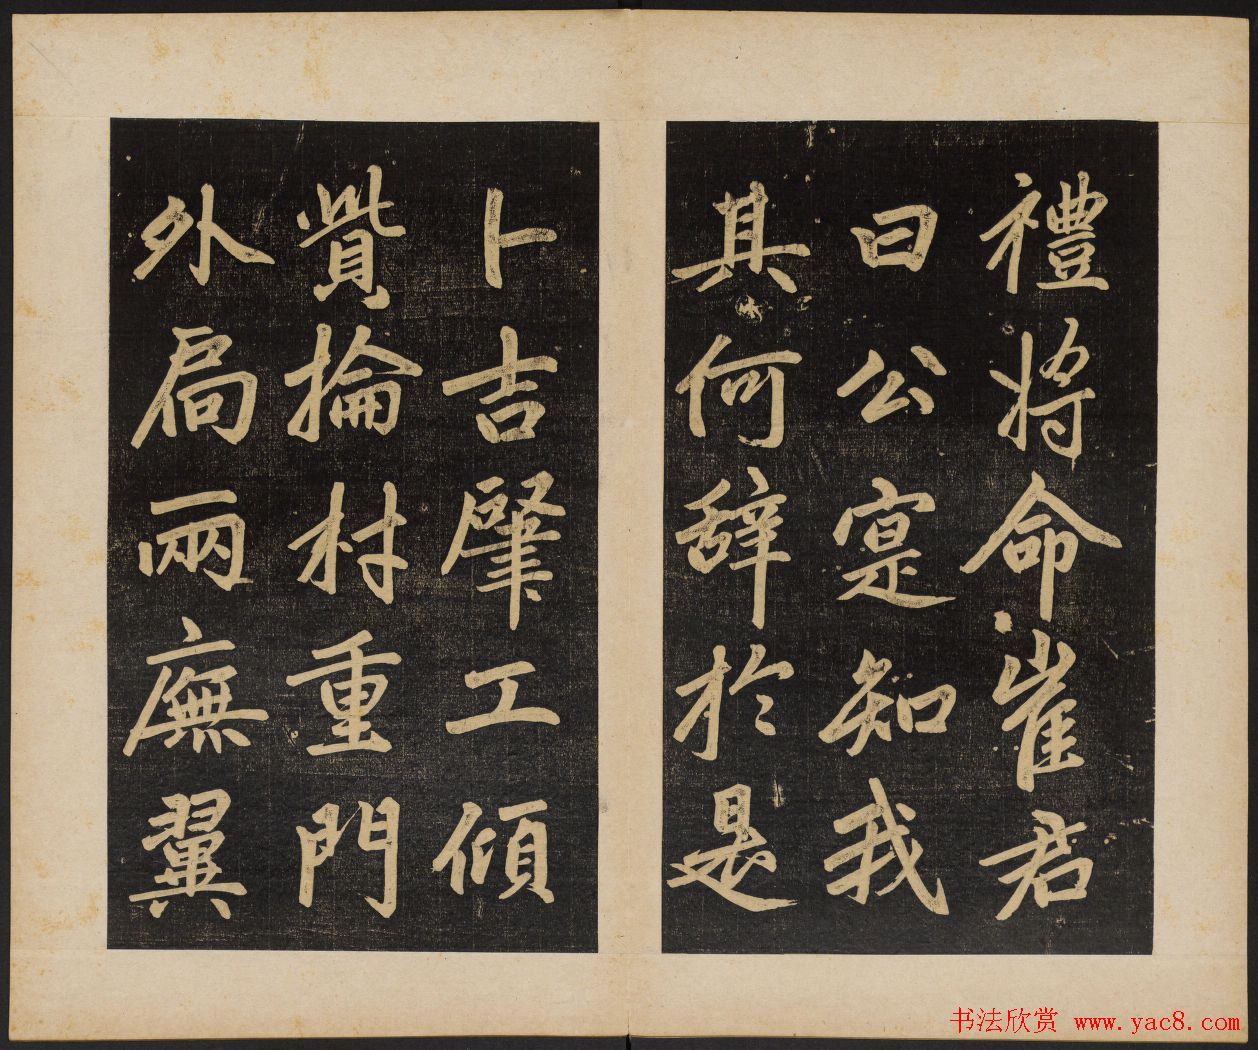 禮將命崔君
曰公寔知我
其何辞於是
卜吉肇工傾
貲掄材重門
外局兩廡翼
书法欣赏 www.yac8.com